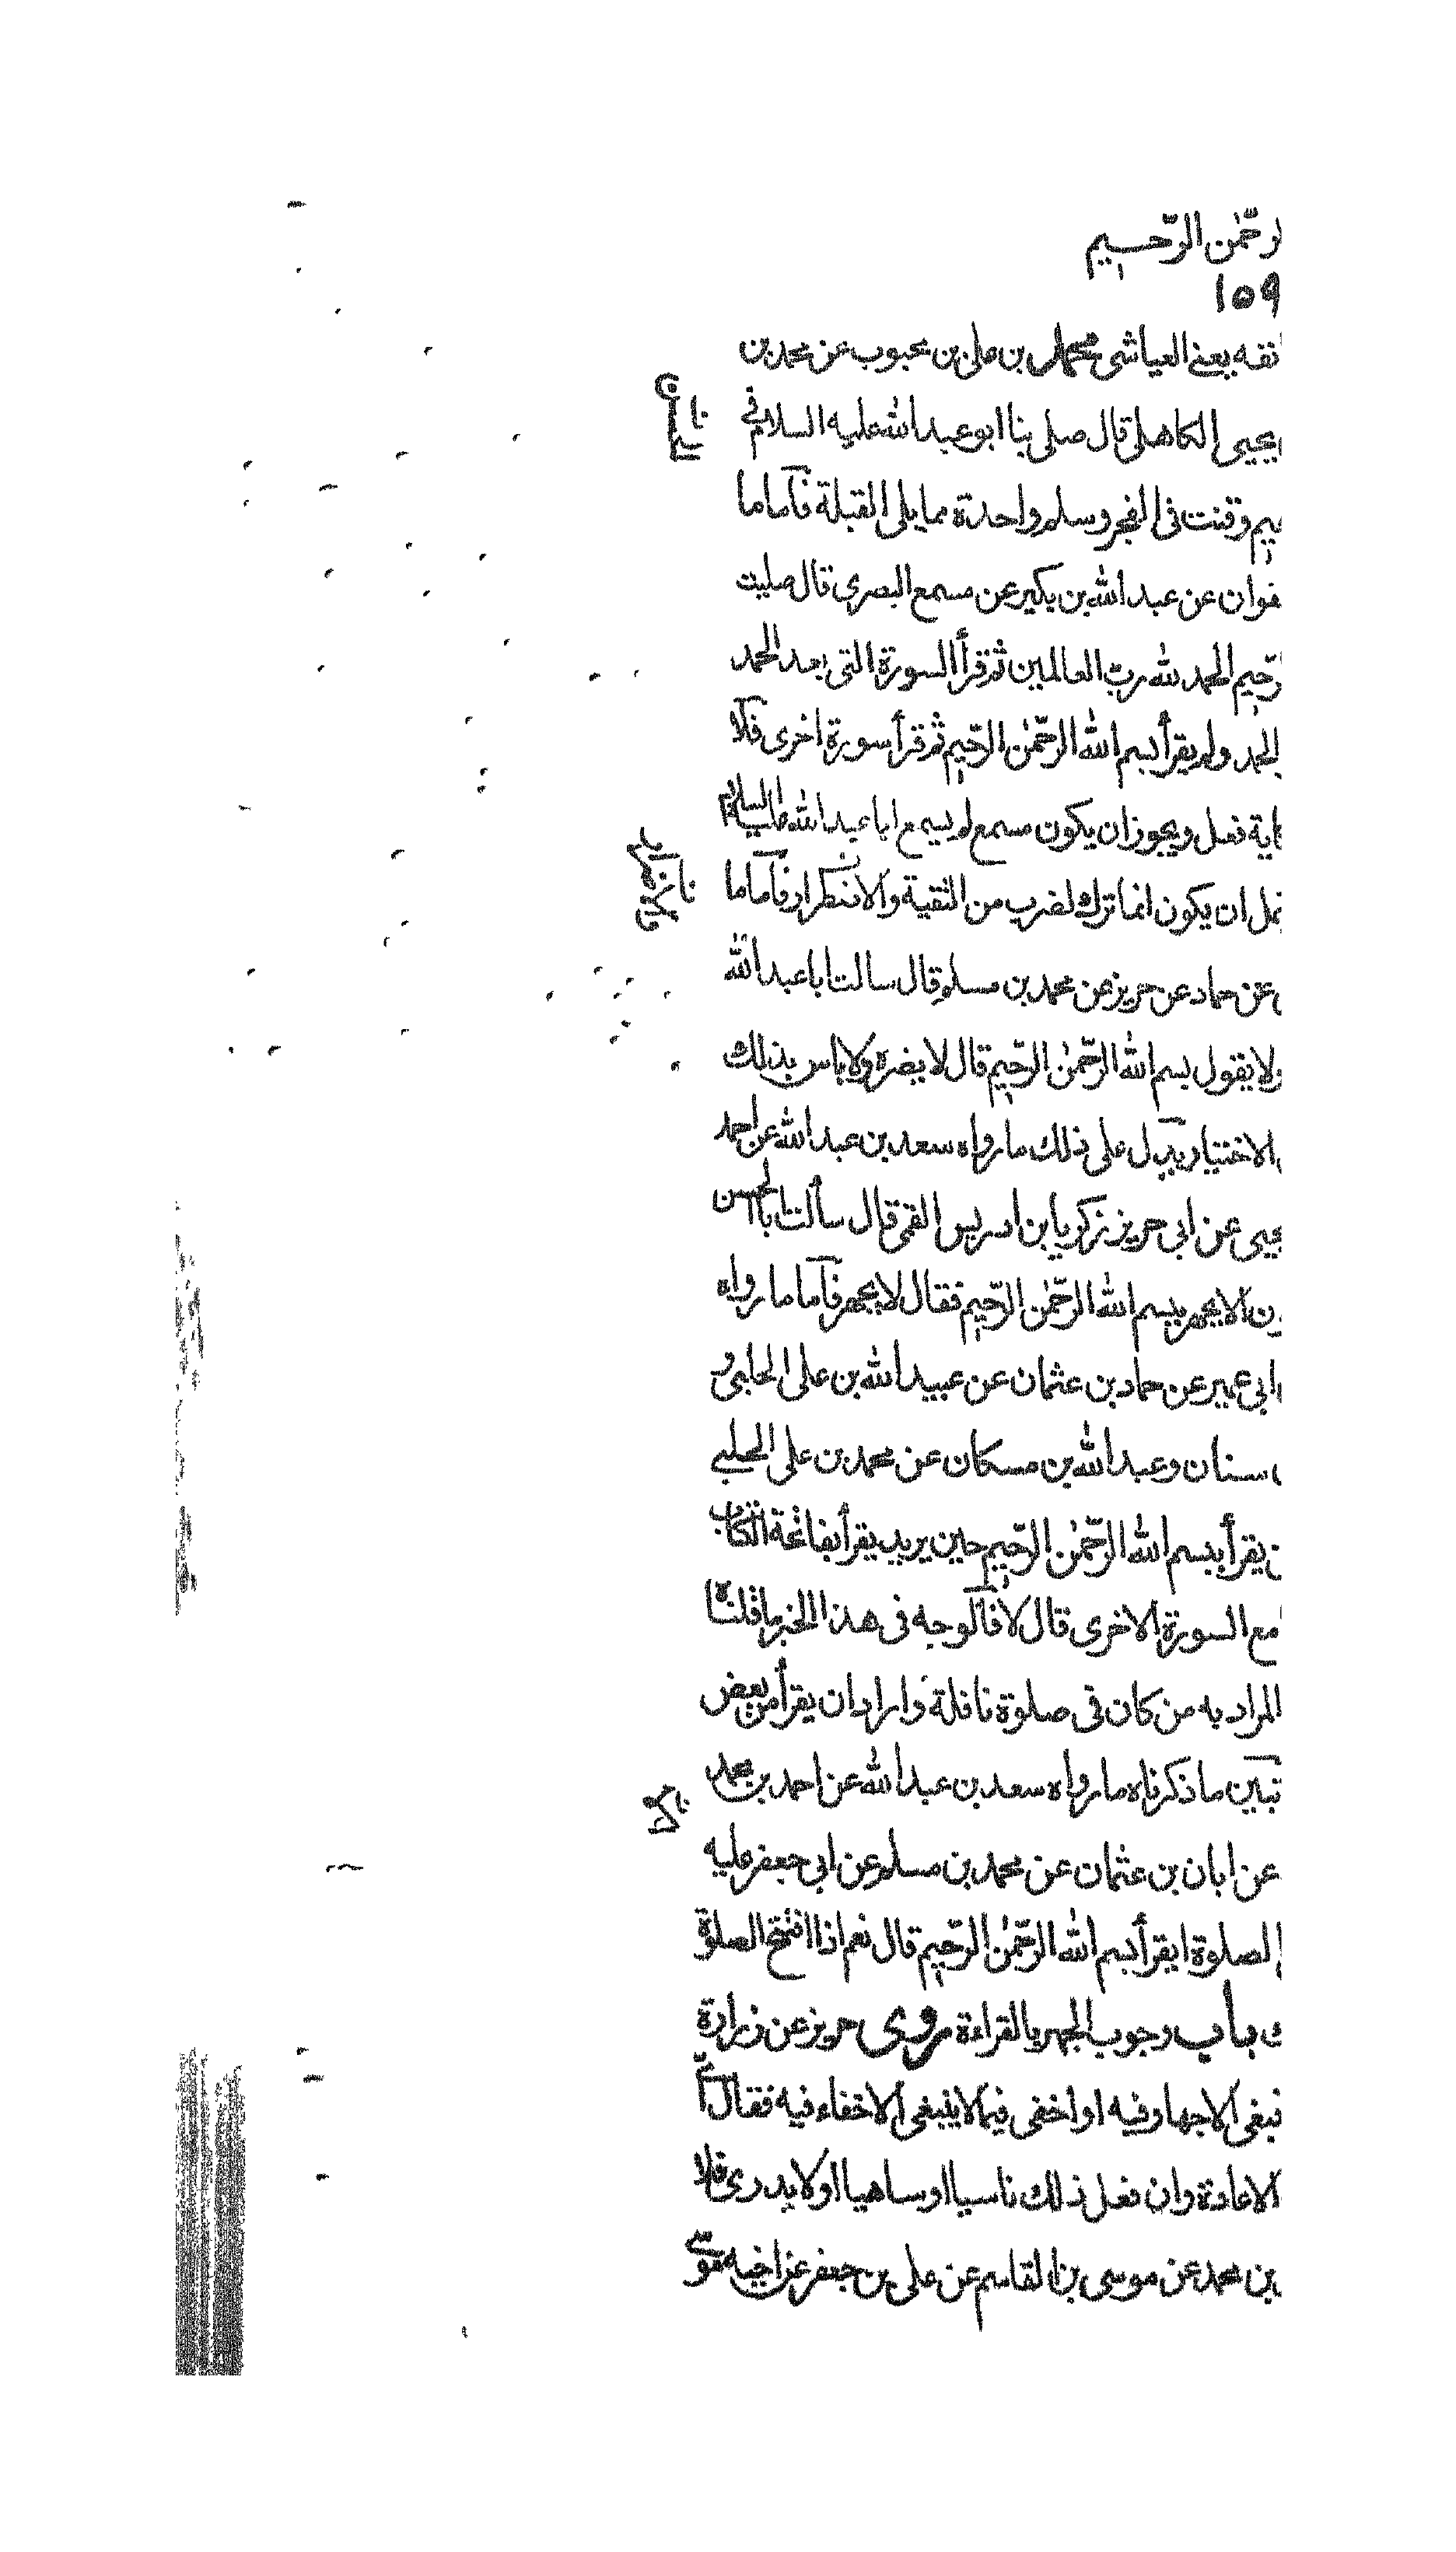 لرحمٰن الرّحسیم
۱۵۹
نقه یعنے العیاشی محمد بن علی بن محبوب عن محمد بن
یحیی الکاهلی قال صلی بنا ابو عبد الله علیه السلام فی
حیم وقنت فی الفجر وسلم واحدة مما یلی القبلة فاما ما
فوان عن عبد الله بن بکیر عن مسمع البصری قال صلیت
لرّحیم الحمد لله رب العالمین ثم قرأ السورة التی بعد الحمد
الحمد ولم یقرأ بسم الله الرّحمٰن الرّحیم ثم قرأ سورة اخری فلا
ایة فعل ویجوز ان یکون مسمع لم یسمع ابا عبد الله علیه السلام
ان یکون انما ترک لضرب من التقیة والاضطرار فاما ما
عن حماد عن حریز عن محمد بن مسلم قال سالت ابا عبد الله
ولا یقول بسم الله الرّحمٰن الرّحیم قال لا یضره ولا باس بذلک
الاختیار یدل علی ذلک ما رواه سعد بن عبد الله عن احمد
یحیی عن ابی حریز زکریا بن ادریس القمی قال سألت ابا الحسن
ون الا یجهر ببسم الله الرّحمٰن الرّحیم فقال لا یجهر فاما ما رواه
ابی عمیر عن حماد بن عثمان عن عبید الله بن علی الحلبی و
سنان وعبد الله بن مسکان عن محمد بن علی الحلبے
یقرأ ببسم الله الرّحمٰن الرّحیم حین یرید یقرأ بفاتحة الکتاب
مع السورة الاخری قال لا فالوجه فی هذا الخبر ما قلناه
المراد به من کان فی صلوة نافلة واراد ان یقرأ من بعض
تبین ما ذکرناه ما رواه سعد بن عبد الله عن احمد بن محمد
عن ابان بن عثمان عن محمد بن مسلم عن ابی جعفر علیه
الصلوة ایقرأ بسم الله الرّحمٰن الرّحیم قال نعم اذا افتتح الصلوة
ک باب وجوب الجهر بالقراءة روی حریز عن زرارة
ینبغی الاجهار فیه او اخفی فیما لا ینبغی الاخفاء فیه فقال ایّ
الاعادة وان فعل ذلک ناسیا او ساهیا او لا یدری فلا
بن محمد عن موسی بن القاسم عن علی بن جعفر عن اخیه موسی